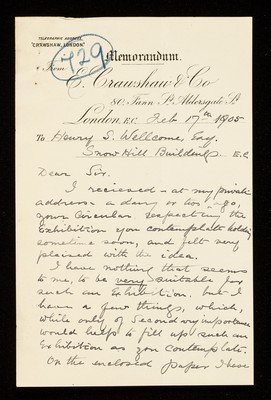 TELEGRAPHIC ADDRESS,
"CRAWSHAW, LONDON."
729
Memorandum.
From
E. Crawshaw & Co
80, Fann St. Aldersgate St.
London, E.C. Feb 17th 1905
To Henry S. Wellcome, Esq.
Snow Hill Buildings. E.C
Dear Sir.
I recieved - at my private
address - a day or two ago,
your Circular respecting the
Exhibition you contemplate holding
sometime soon, and felt very
plaised with the idea.
I have nothing that seems
to me, to be very suitable for
such an Exhibition. but I
have a few things, which,
while only of secondary importance
would help to fill up such an
Exhibition as you contemplate.
On the enclosed paper I have